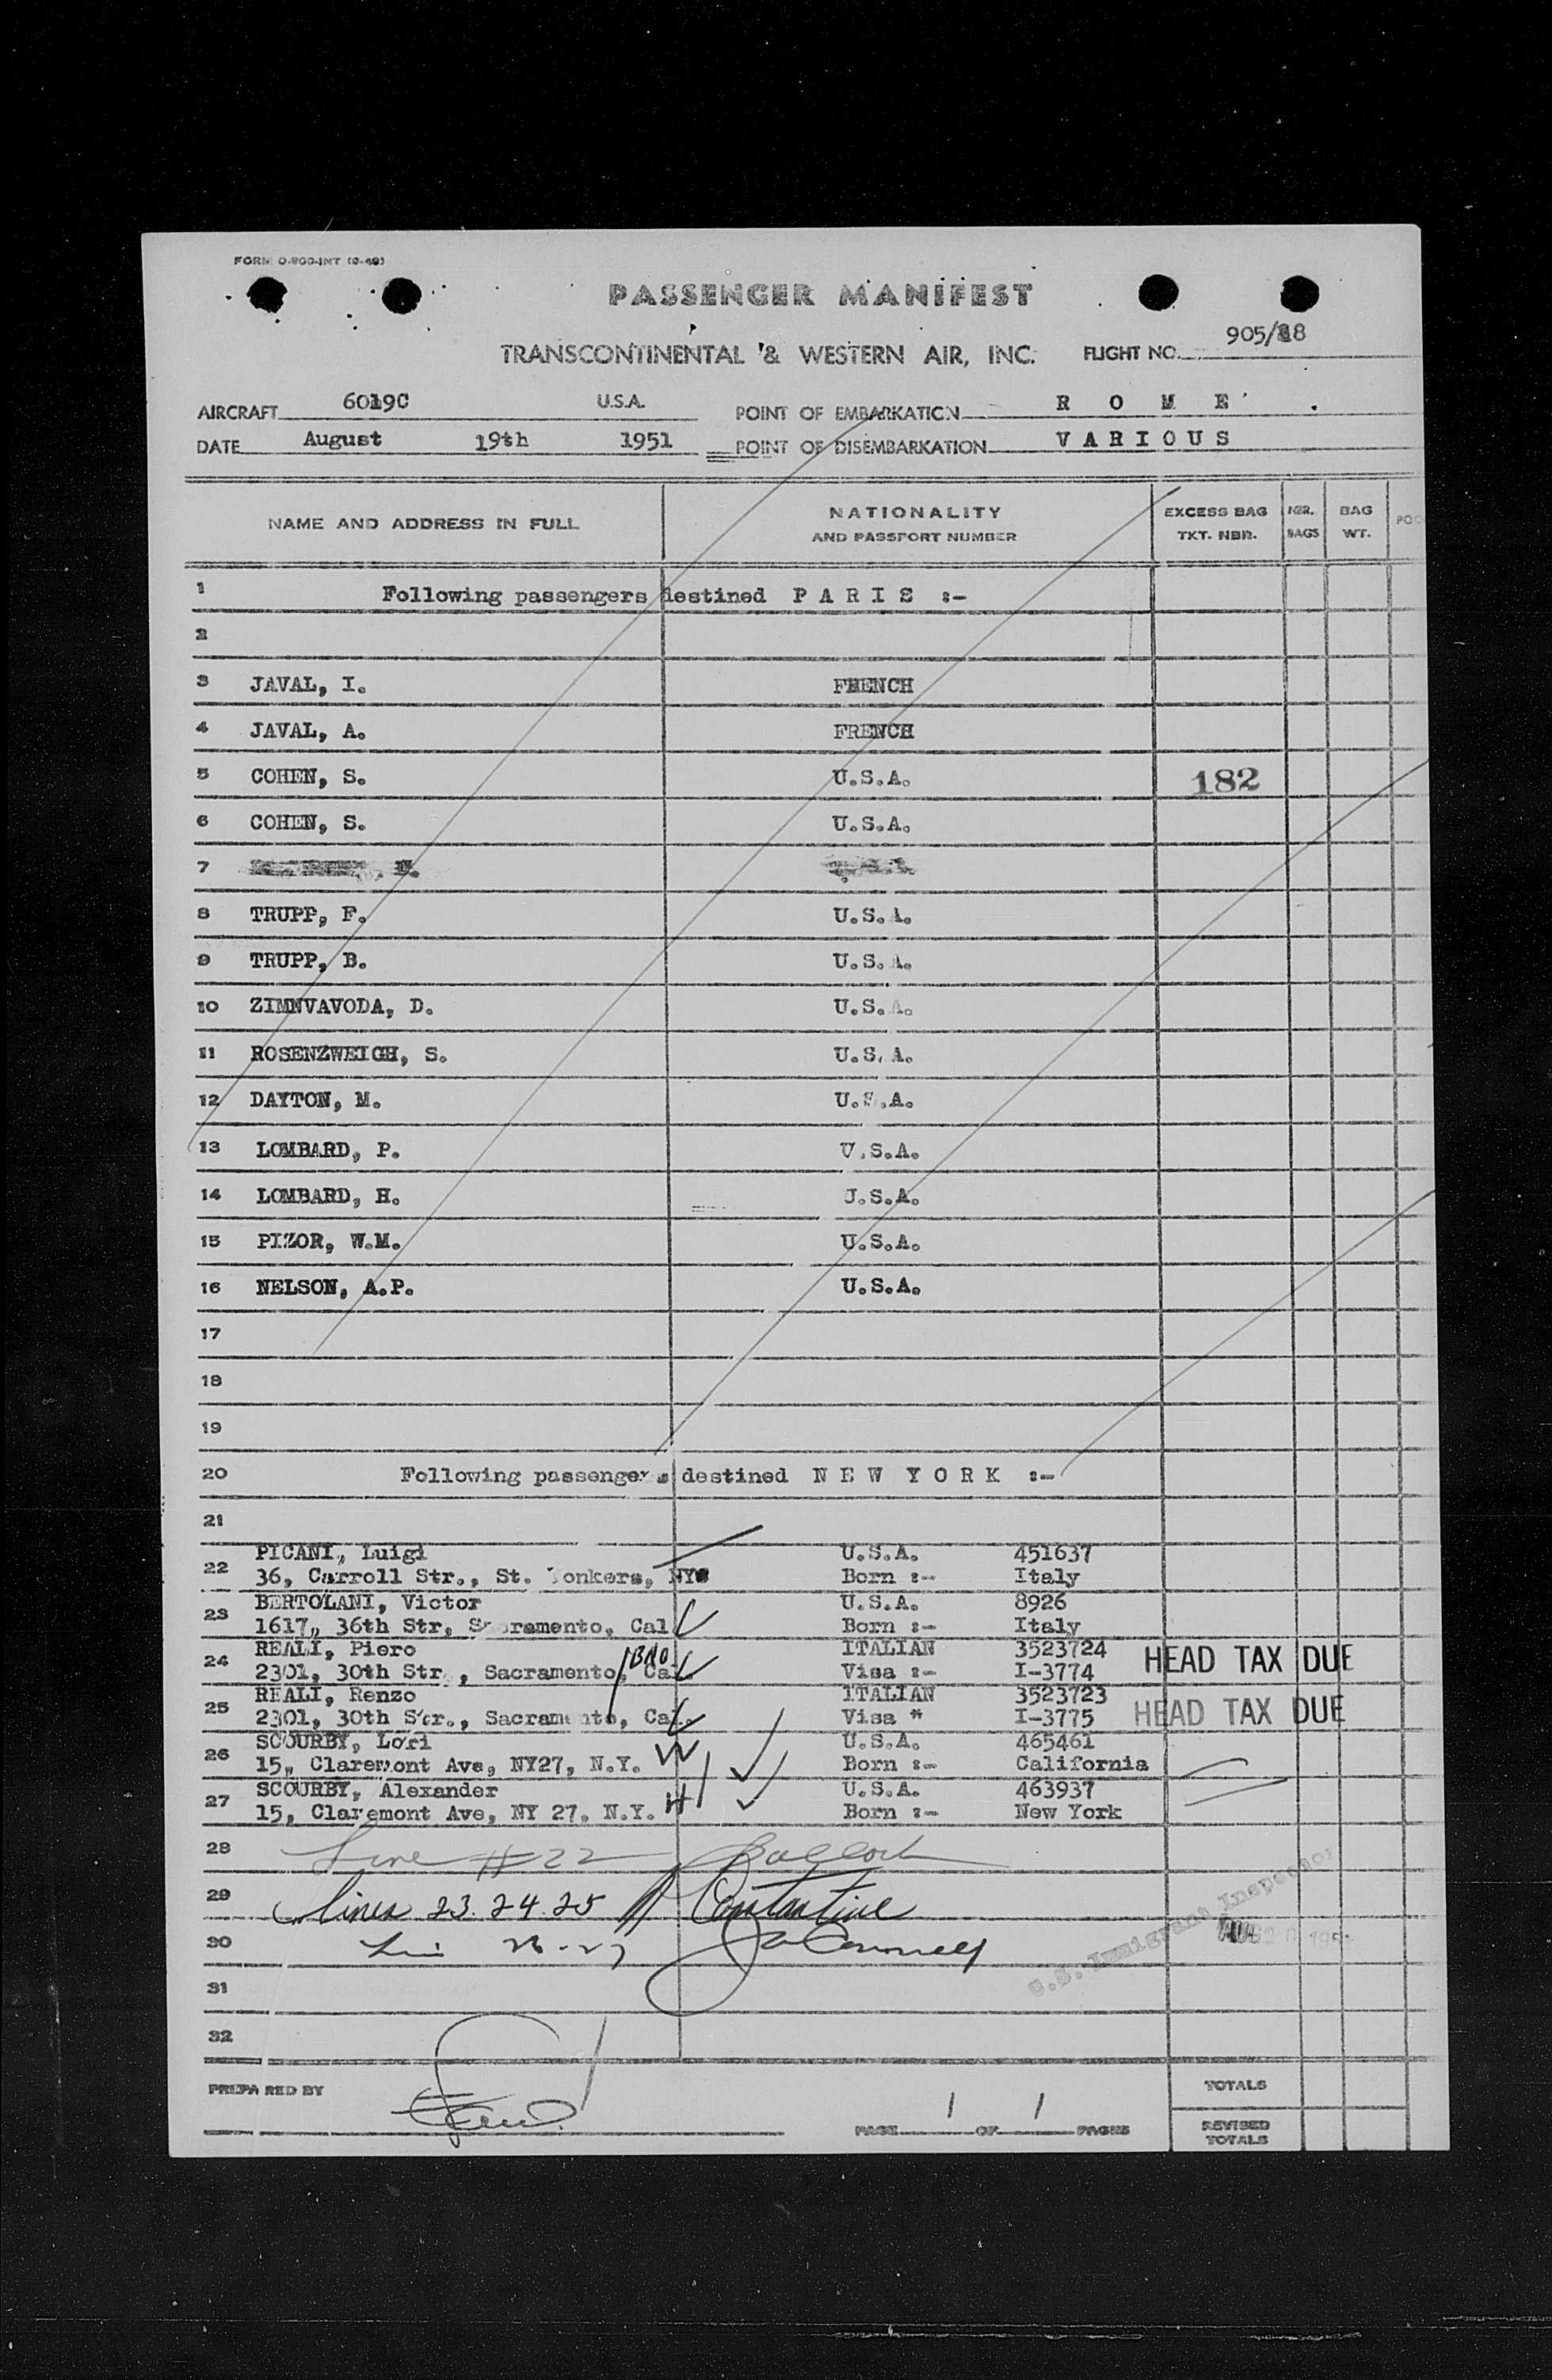 FORM O-800-INT (9-49)
PASSENGER MANIFEST
TRANSCONTINENTAL & WESTERN AIR, INC. FLIGHT NO. 905/18
AIRCRAFT 6019C U.S.A. POINT OF EMBARKATION R O M E
DATE August 19th 1951 POINT OF DISEMBARKATION V A R I O U S
NAME AND ADDRESS IN FULL NATIONALITY AND PASSPORT NUMBER EXCESS BAG TKT. NBR. NBR. BAGS BAG WT.
1 Following passengers destined P A R I S :-
2
3 JAVAL, I. FRENCH
4 JAVAL, A. FRENCH
5 COHEN, S. U.S.A. 182
6 COHEN, S. U.S.A.
7
8 TRUPP, F. U.S.A.
9 TRUPP, B. U.S.A.
10 ZIMNVAVODA, D. U.S.A.
11 ROSENZWEIGH, S. U.S.A.
12 DAYTON, M. U.S.A.
13 LOMBARD, P. U.S.A.
14 LOMBARD, H. U.S.A.
15 PIZOR, W.M. U.S.A.
16 NELSON, A.P. U.S.A.
17
18
19
20 Following passengers destined N E W Y O R K :-
21
22 PICANI, Luigi U.S.A. 451637
36, Carroll Str., St. Yonkers, NY Born :- Italy
23 BERTOLANI, Victor U.S.A. 8926
1617, 36th Str, Sacramento, Cal Born :- Italy
24 REALI, Piero ITALIAN 3523724 HEAD TAX DUE
2301, 30th Str., Sacramento, Cal. Visa :- I-3774
25 REALI, Renzo ITALIAN 3523723 HEAD TAX DUE
2301, 30th Str., Sacramento, Cal. Visa " I-3775
26 SCOURBY, Lori U.S.A. 465461
15, Claremont Ave, NY27, N.Y. Born :- California
27 SCOURBY, Alexander U.S.A. 463937
15, Claremont Ave, NY 27, N.Y. Born :- New York
28 Line #22
29 Lines 23.24.25 Constantine
30 26-27 O'Connell
U.S. Immigrant Inspector
AUG 20 195
31
32
PREPARED BY
PAGE 1 OF 1 PAGES
TOTALS
REVISED TOTALS